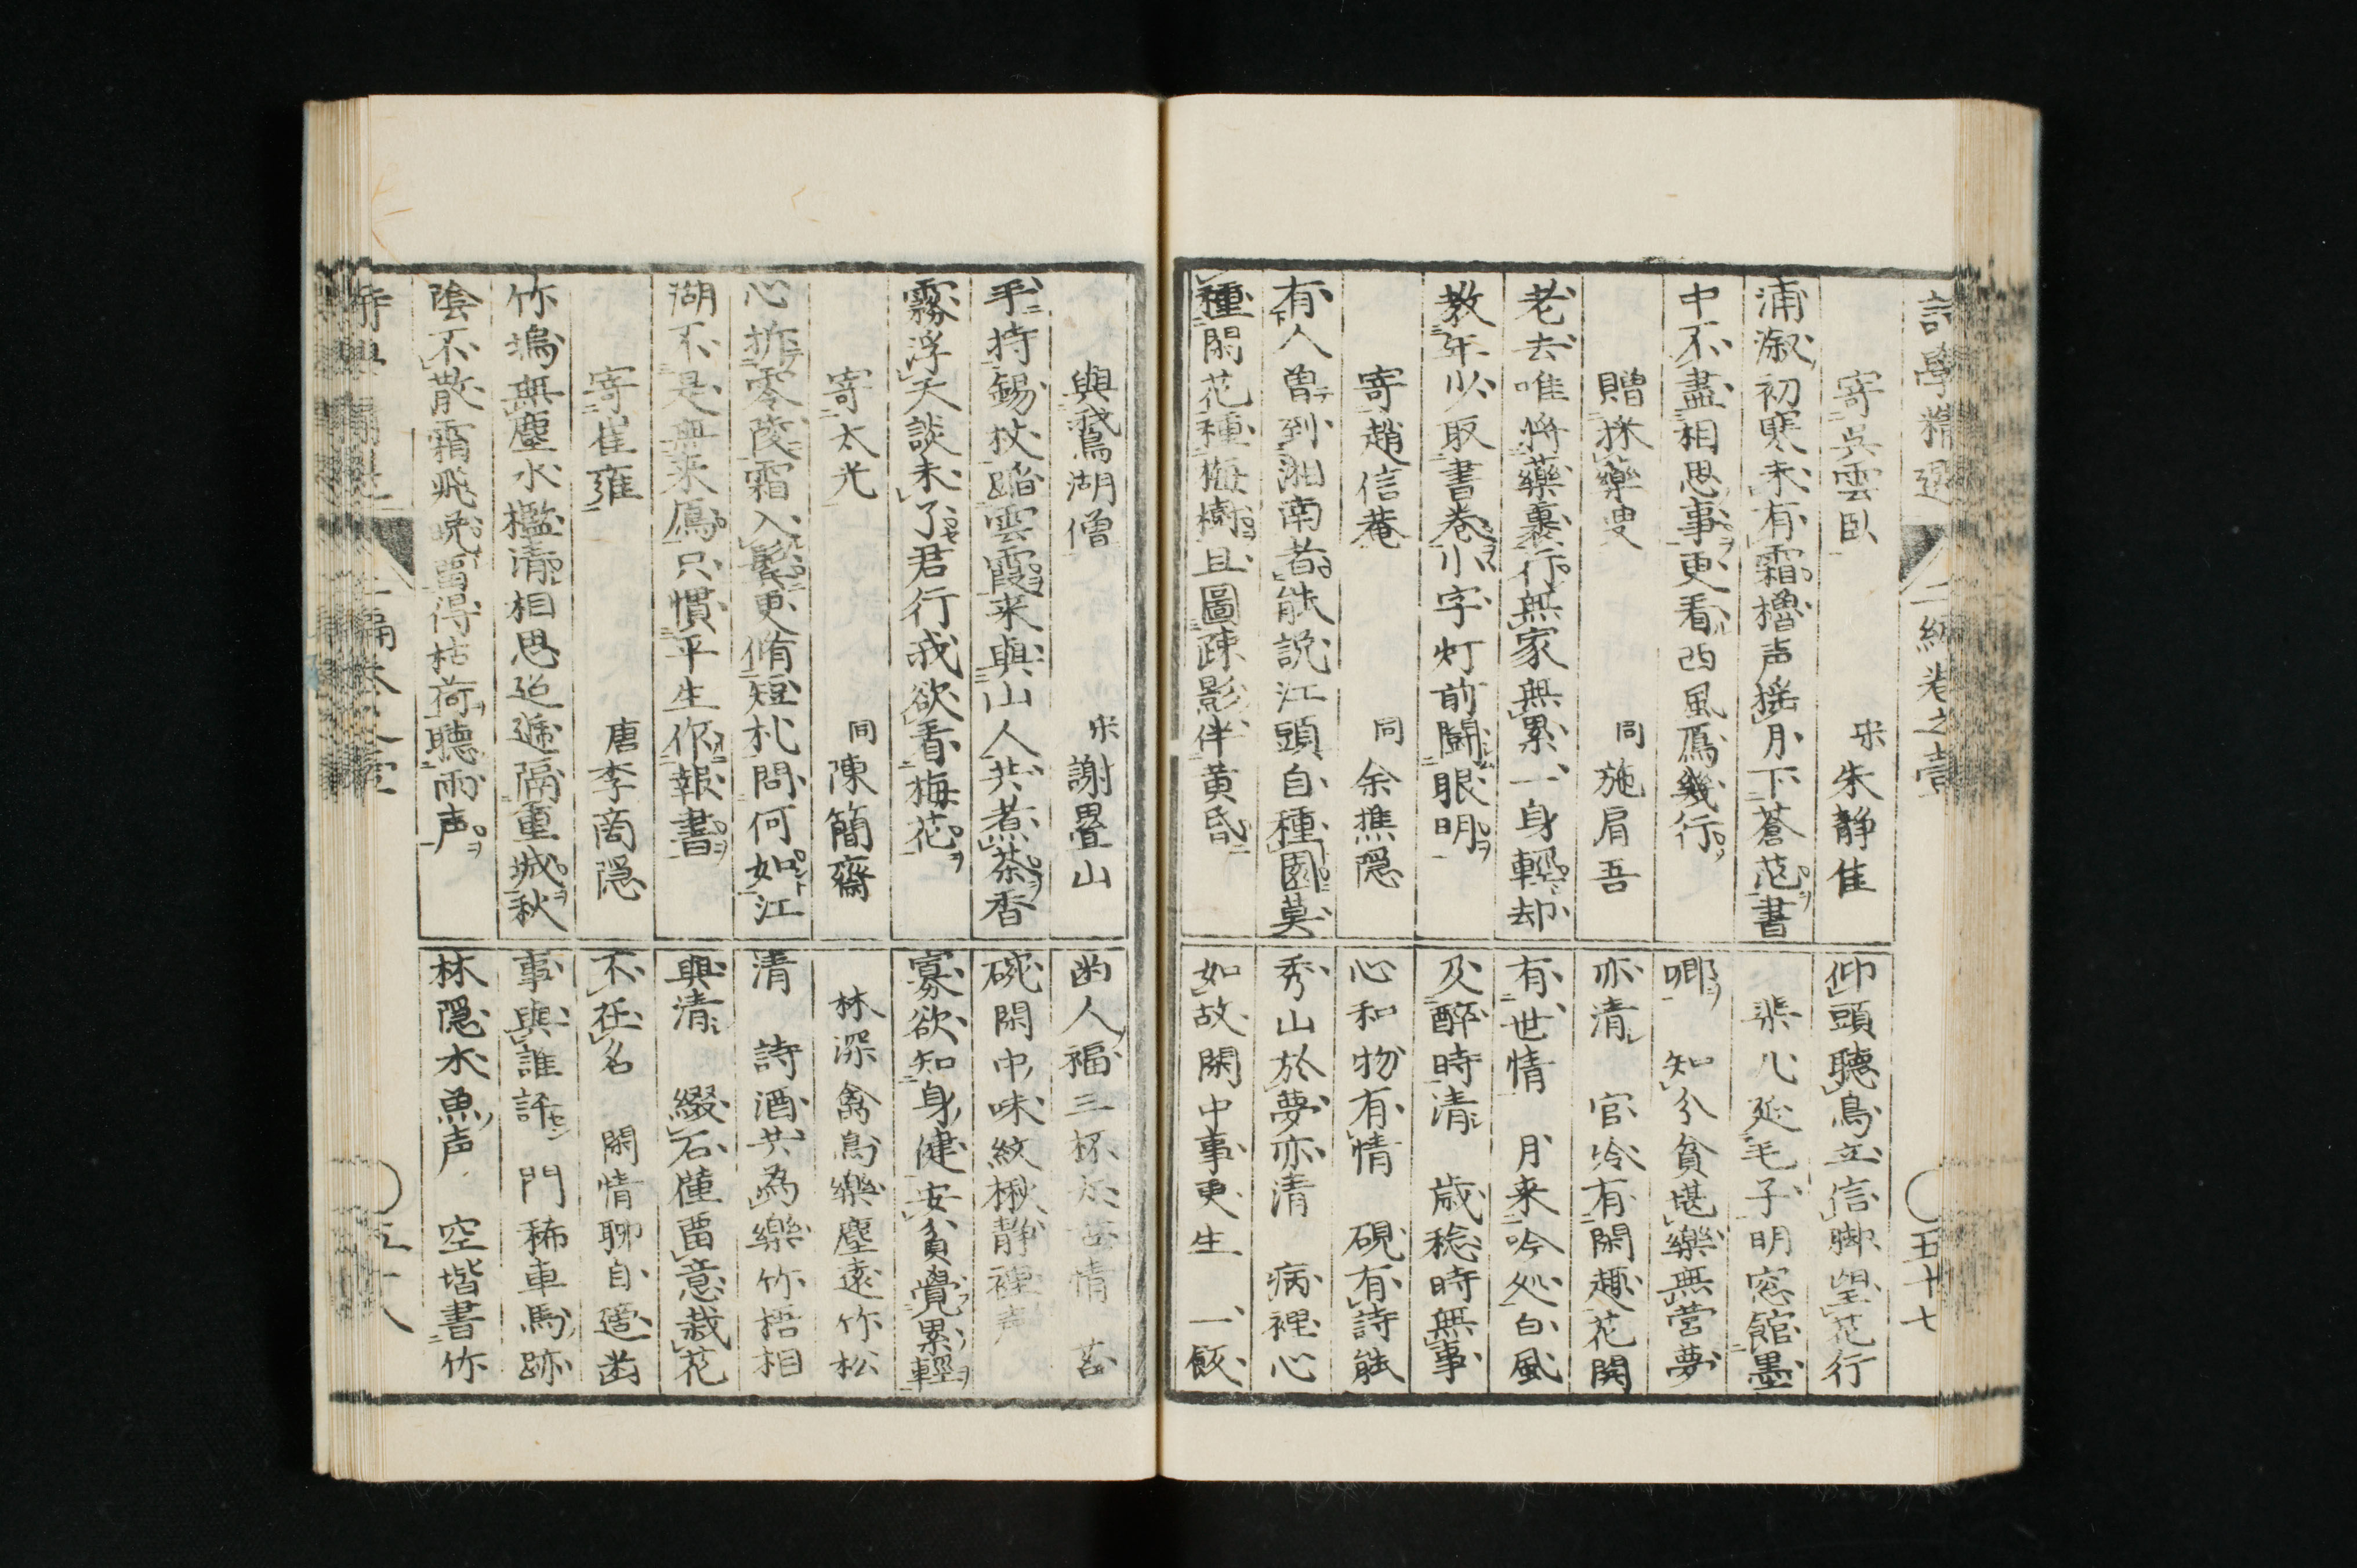 二編卷之壹
五十七
寄吳雲臥
宋 朱靜佳
浦漵初寒未有霜櫓声揺月下蒼茫書
中不盡相思事更看西風鴈幾行
贈採藥叟
同 施肩吾
老去唯將藥裹行無家無累一身輕却
教年少取書卷小字灯前闘眼明
寄趙信菴
同 余樵隠
有人曽到湘南者能説江頭自種園莫
種閑花種梅樹且圖疎影伴黄昏
仰頭聴鳥立信脚望花行
棐几延毛子明窓館墨
卿 知分貧堪樂無営夢
亦清 官冷有閑趣花開
有世情 月来吟処白風
及醉時清 歳稔時無事
心和物有情 硯有詩能
秀山於夢亦清 病裡心
如故閑中事更生 一飯
與鵞湖僧
宋 謝疊山
手持錫杖踏雲霞来與山人共煮茶香
霧浮天談未了君行我欲看梅花
寄太光
同 陳簡齋
心折零陵霜入鬢更脩短札問何如江
湖不是無来鴈只慣平生作報書
寄崔雍
唐 李商隠
竹塢無塵水檻清相思迢逓隔重城秋
陰不散霜飛晩畱得枯荷聴雨声
凾人福三杯 世情
碗閑中味紋楸静裡声
寡欲知身健安貧覺累輕
林深禽鳥樂塵遠竹松
清 詩酒共為樂竹梧相
與清 綴石僮畱意栽花
不任名 閑情聊自適凾
事與誰評 門稀車馬跡
林隠水魚声 空堦書竹